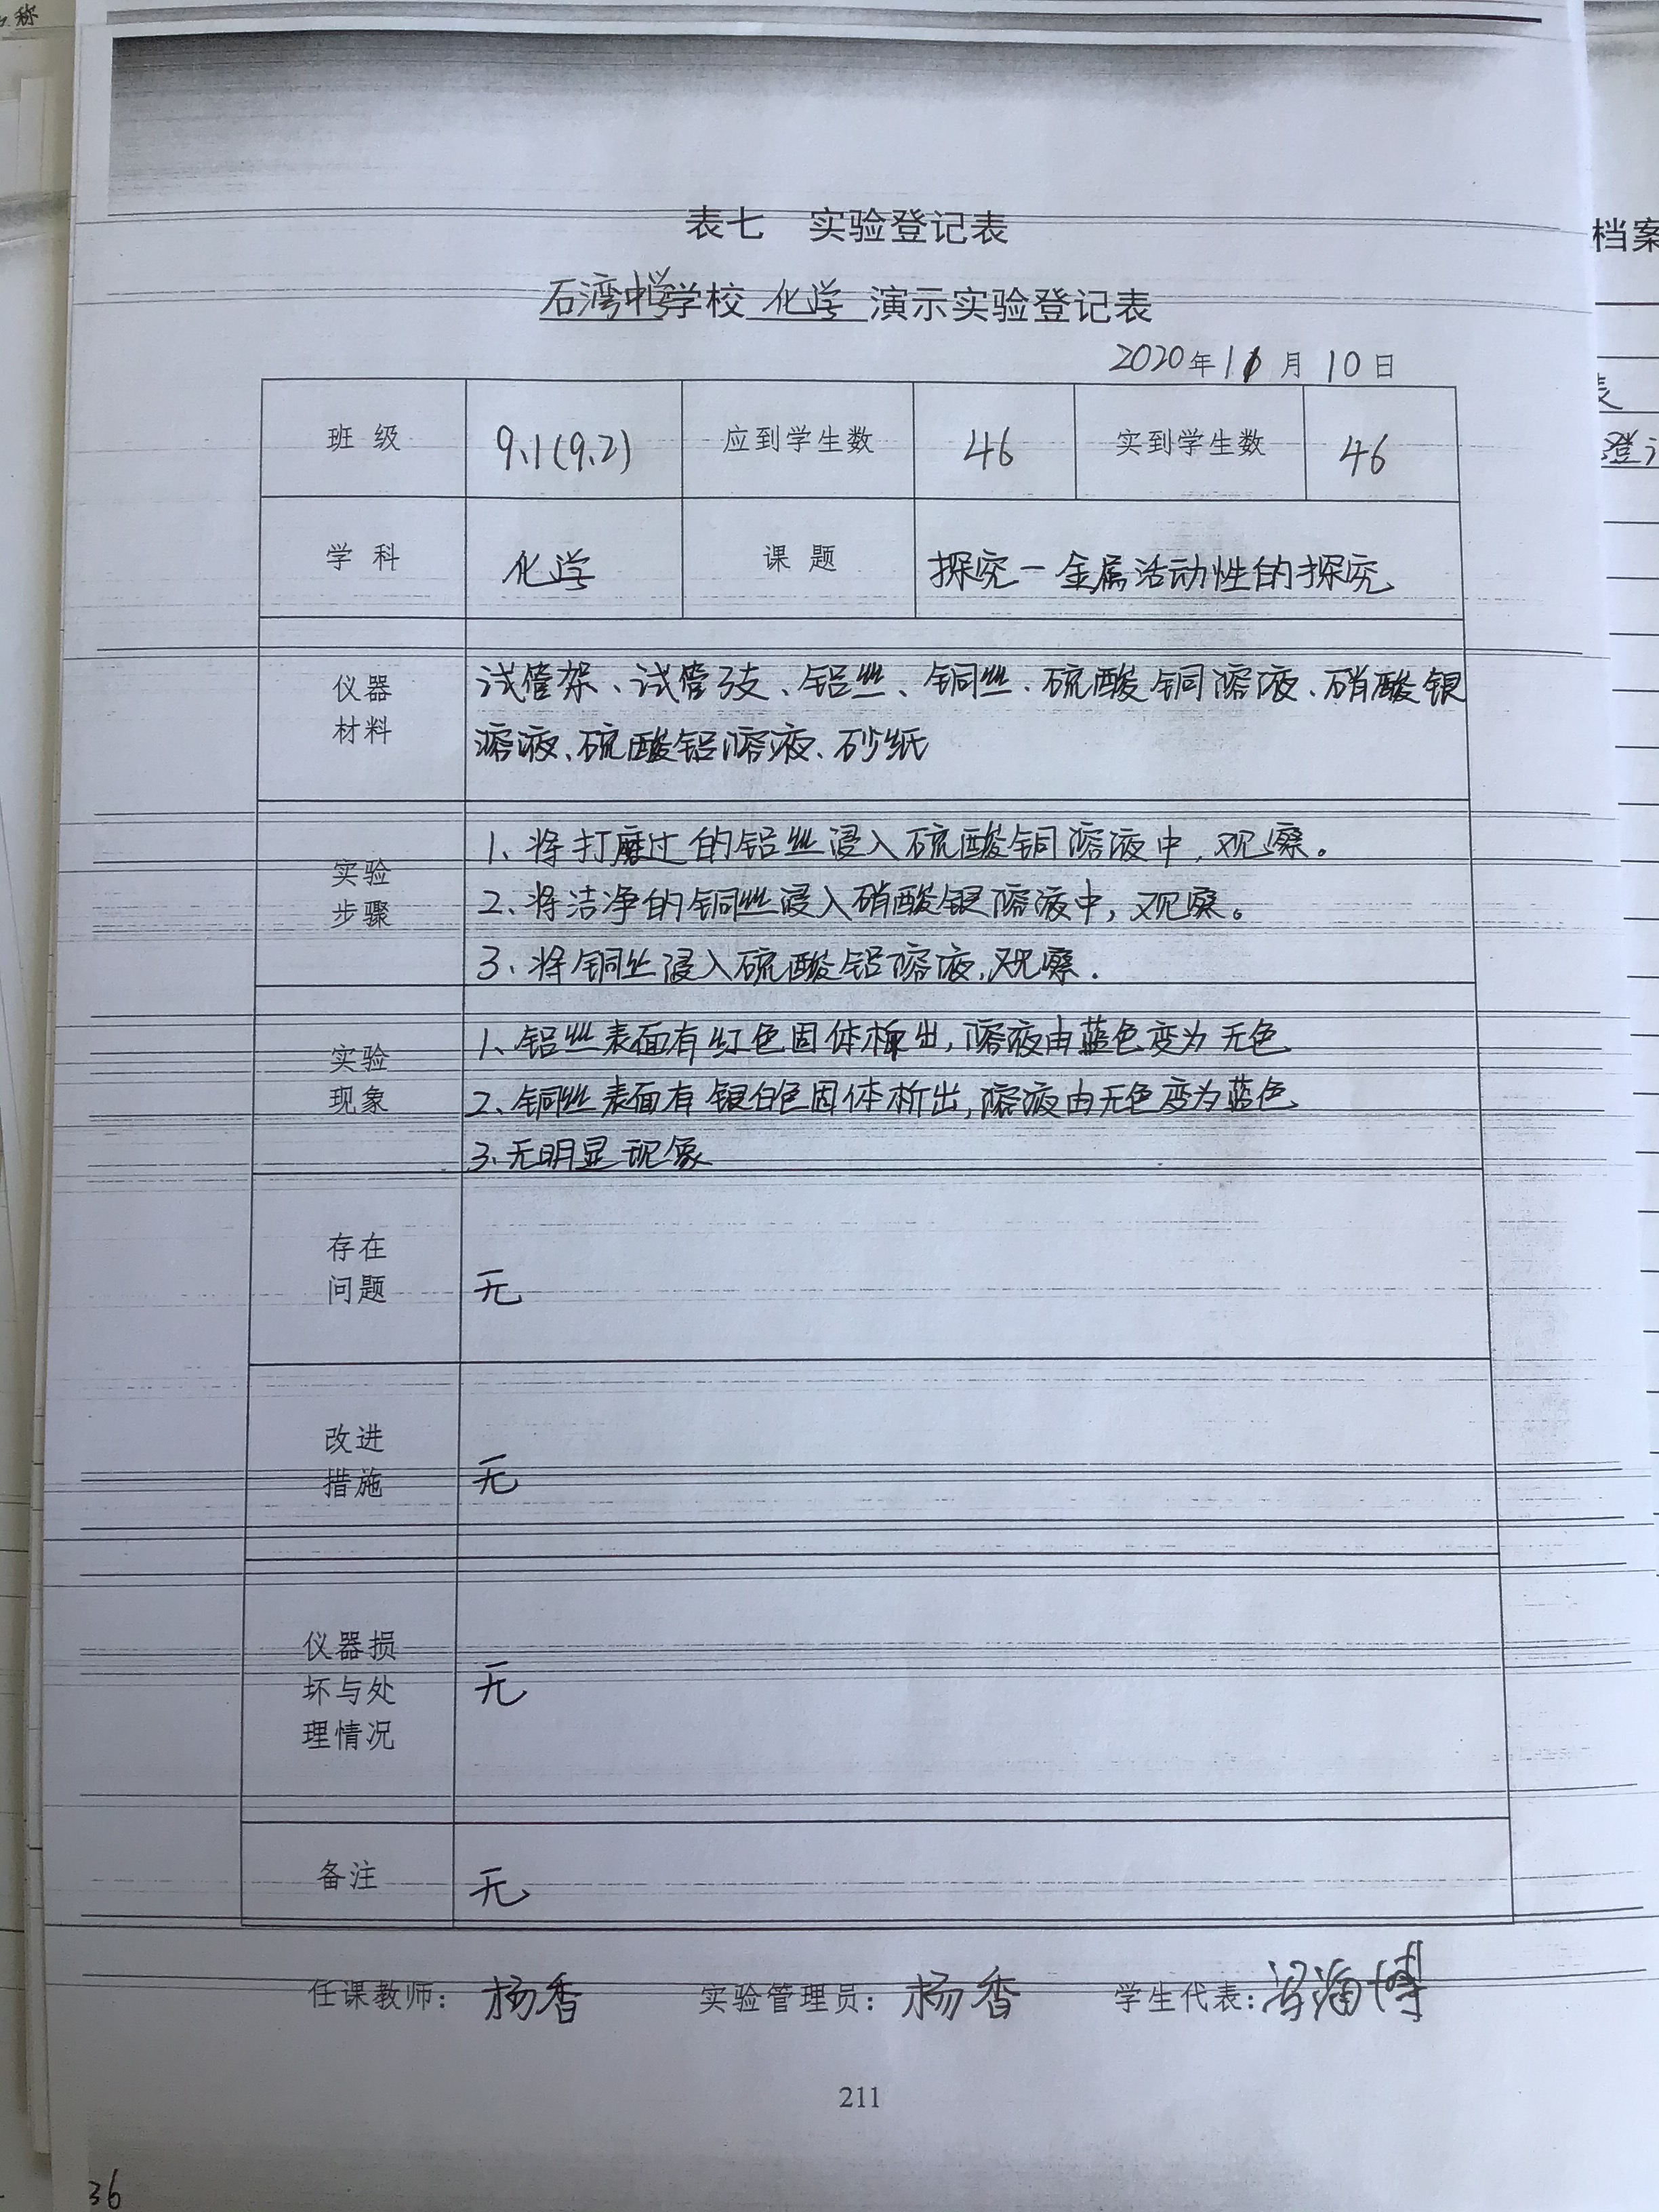 称
表七 实验登记表
石湾中学学校 化学 演示实验登记表
2020年11月10日
班级 9.1(9.2) 应到学生数 46 实到学生数 46
学科 化学 课题 探究一金属活动性的探究
仪器
材料
试管架、试管3支、铝丝、铜丝、硫酸铜溶液、硝酸银
溶液、硫酸铝溶液、砂纸
实验
步骤
1、将打磨过的铝丝浸入硫酸铜溶液中,观察。
2、将洁净的铜丝浸入硝酸银溶液中,观察。
3、将铜丝浸入硫酸铝溶液,观察.
实验
现象
1、铝丝表面有红色固体析出,溶液由蓝色变为无色
2、铜丝表面有银白色固体析出,溶液由无色变为蓝色
3、无明显现象
存在
问题
无
改进
措施
无
仪器损
坏与处
理情况
无
备注 无
任课教师: 杨香 实验管理员: 杨香 学生代表:
211
36
档案
表
登